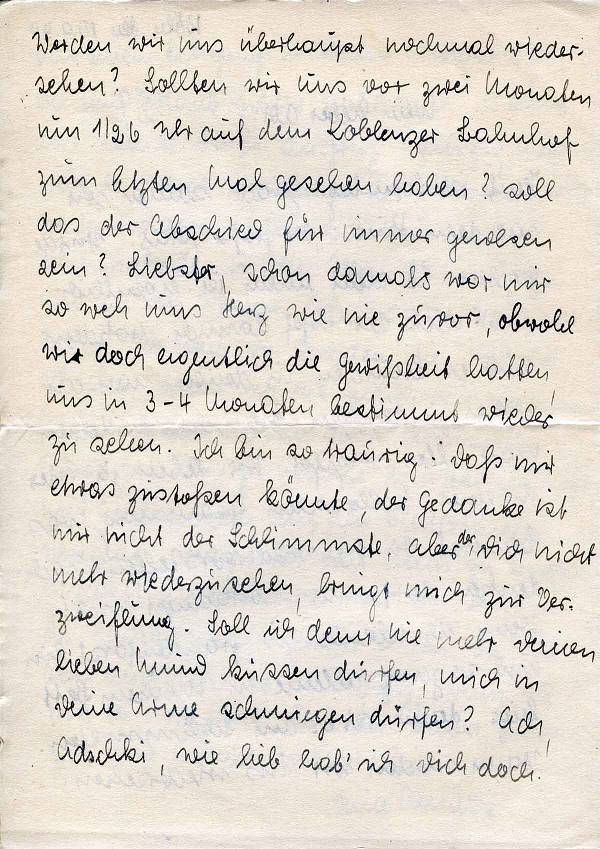 Werden wir uns überhaupt nochmal wieder-
sehen? Sollten wir uns vor zwei Monaten
um 1/26 Uhr auf dem Koblenzer Bahnhof
zum letzten Mal gesehen haben? Soll
das der Abschied für immer gewesen
sein? Liebster, schon damals war mir
so weh ums Herz wie nie zuvor, obwohl
wir doch eigentlich die Gewißheit hatten,
uns in 3-4 Monaten bestimmt wieder
zu sehen. Ich bin so traurig! daß mir
etwas zustoßen könnte, der Gedanke ist
mir nicht der Schlimmste, aber der, Dich nicht
mehr wiederzusehen, bringt mich zur Ver-
zweiflung. Soll ich denn nie mehr Deinen
lieben Mund küssen dürfen, mich in
Deine Arme schmiegen dürfen? Ach,
Adschki, wie lieb hab' ich Dich doch.